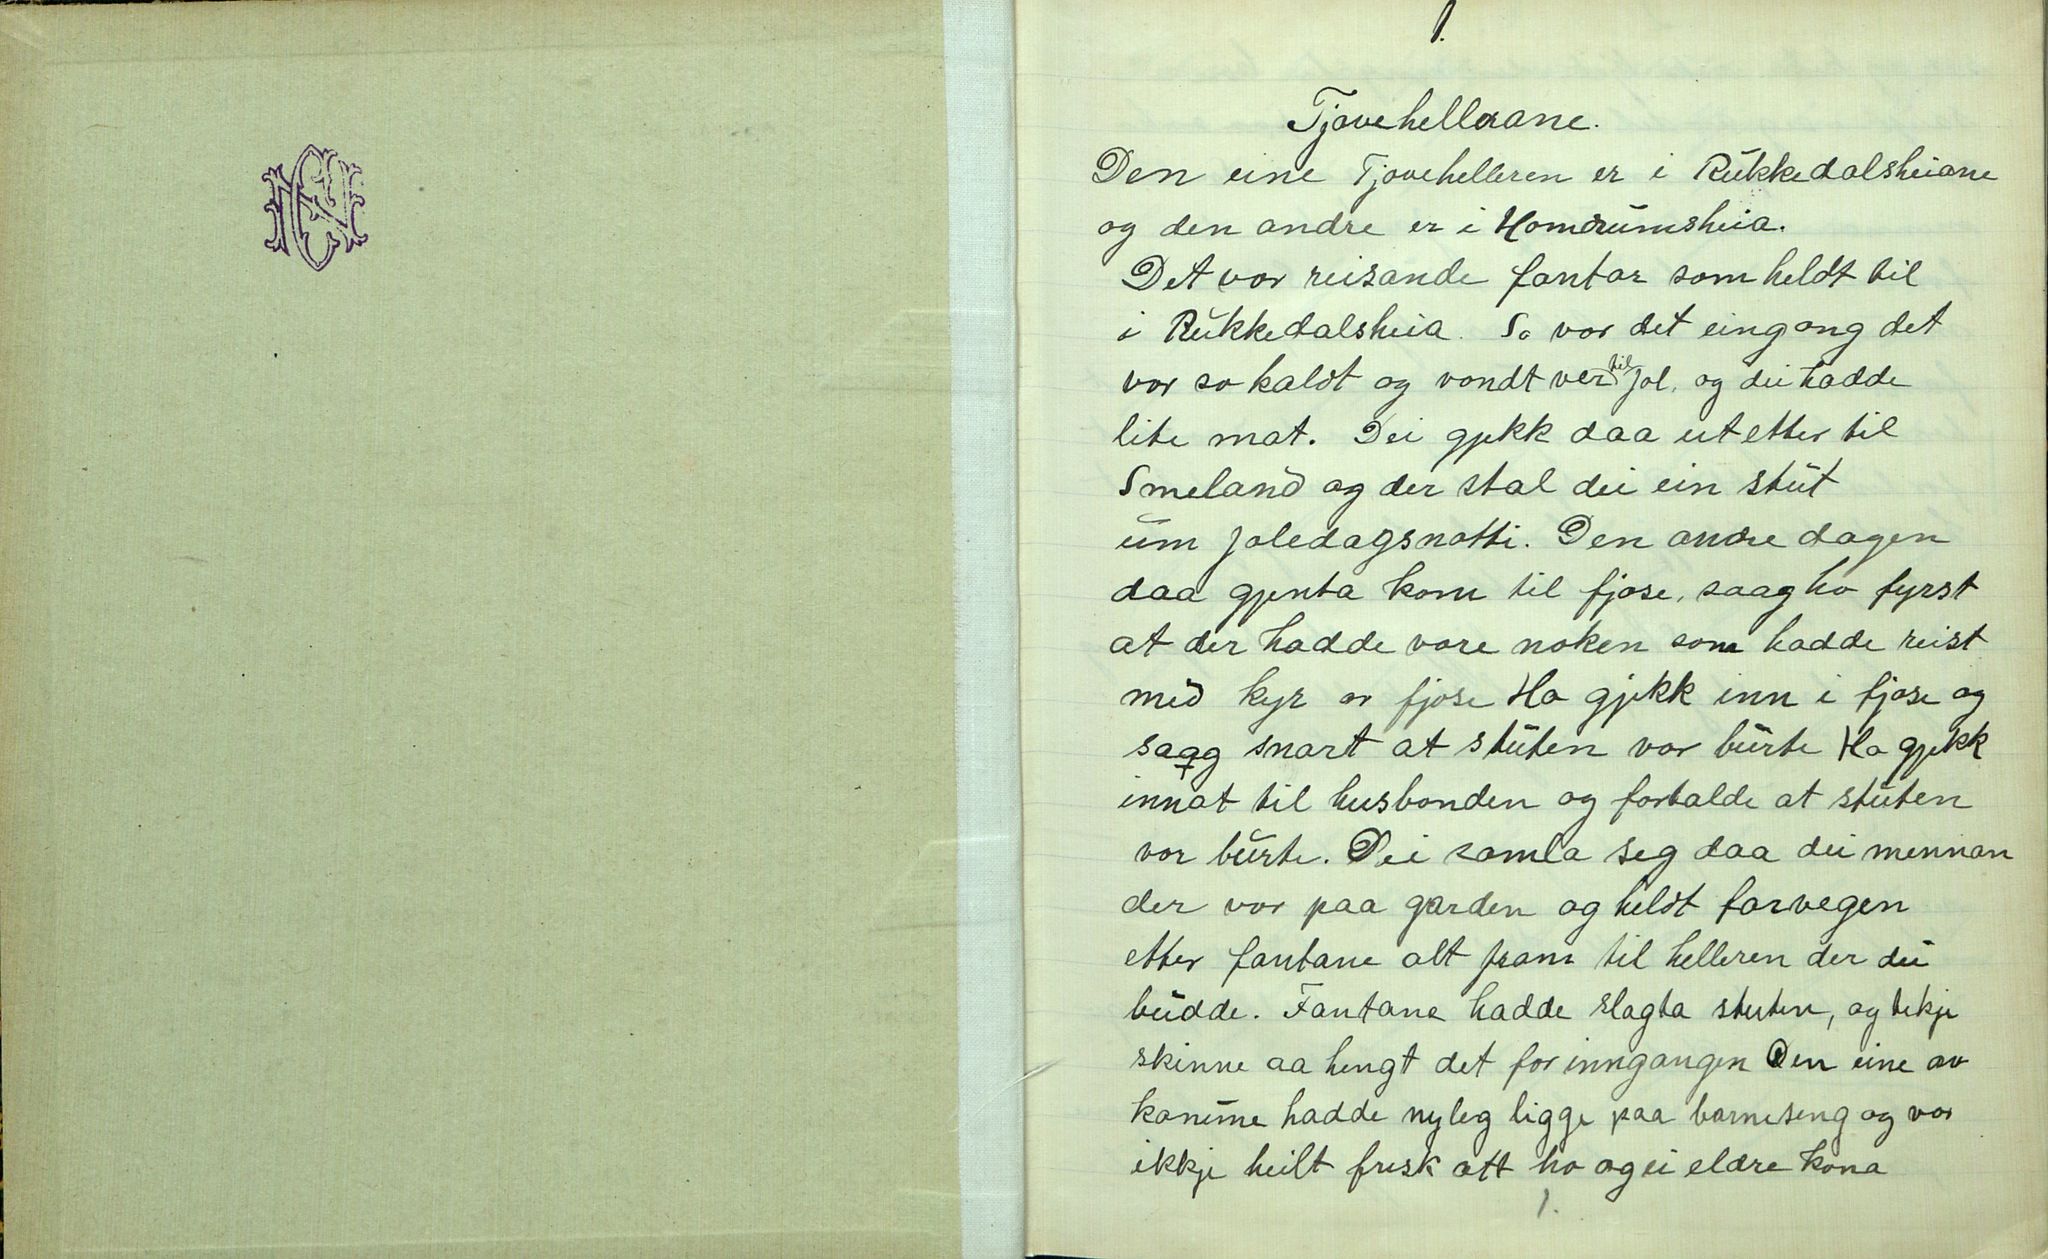 1.
Tjovehellerane.
Den eine Tjovehelleren er i Rukkedalsheiane
og den andre er i Homdrumsheia.
Det var reisande fantar som heldt til
i Rukkedalsheia. So var det eingong det
var so kaldt og vondt ver til jol, og dei hadde
lite mat. Dei gjekk daa ut etter til
Smeland og der stal dei ein stut
um joledagsnatti. Den andre dagen
daa gjenta kom til fjose, saag ho fyrst
at der hadde vore noken som hadde reist
med kyr or fjose Ho gjekk inn i fjose og
saag snart at stuten var burte Ho gjekk
innat til husbonden og fortalde at stuten
var burte. Dei samla seg daa dei mennan
der var paa garden og heldt farvegen
etter fantane alt fram til helleren der dei
budde. Fantane hadde slagta stuten, og tekje
skinne aa hengt det for inngangen Den eine av
konune hadde nyleg ligge paa barneseng og var
ikkje heilt frisk att ho og ei eldre kona
1.